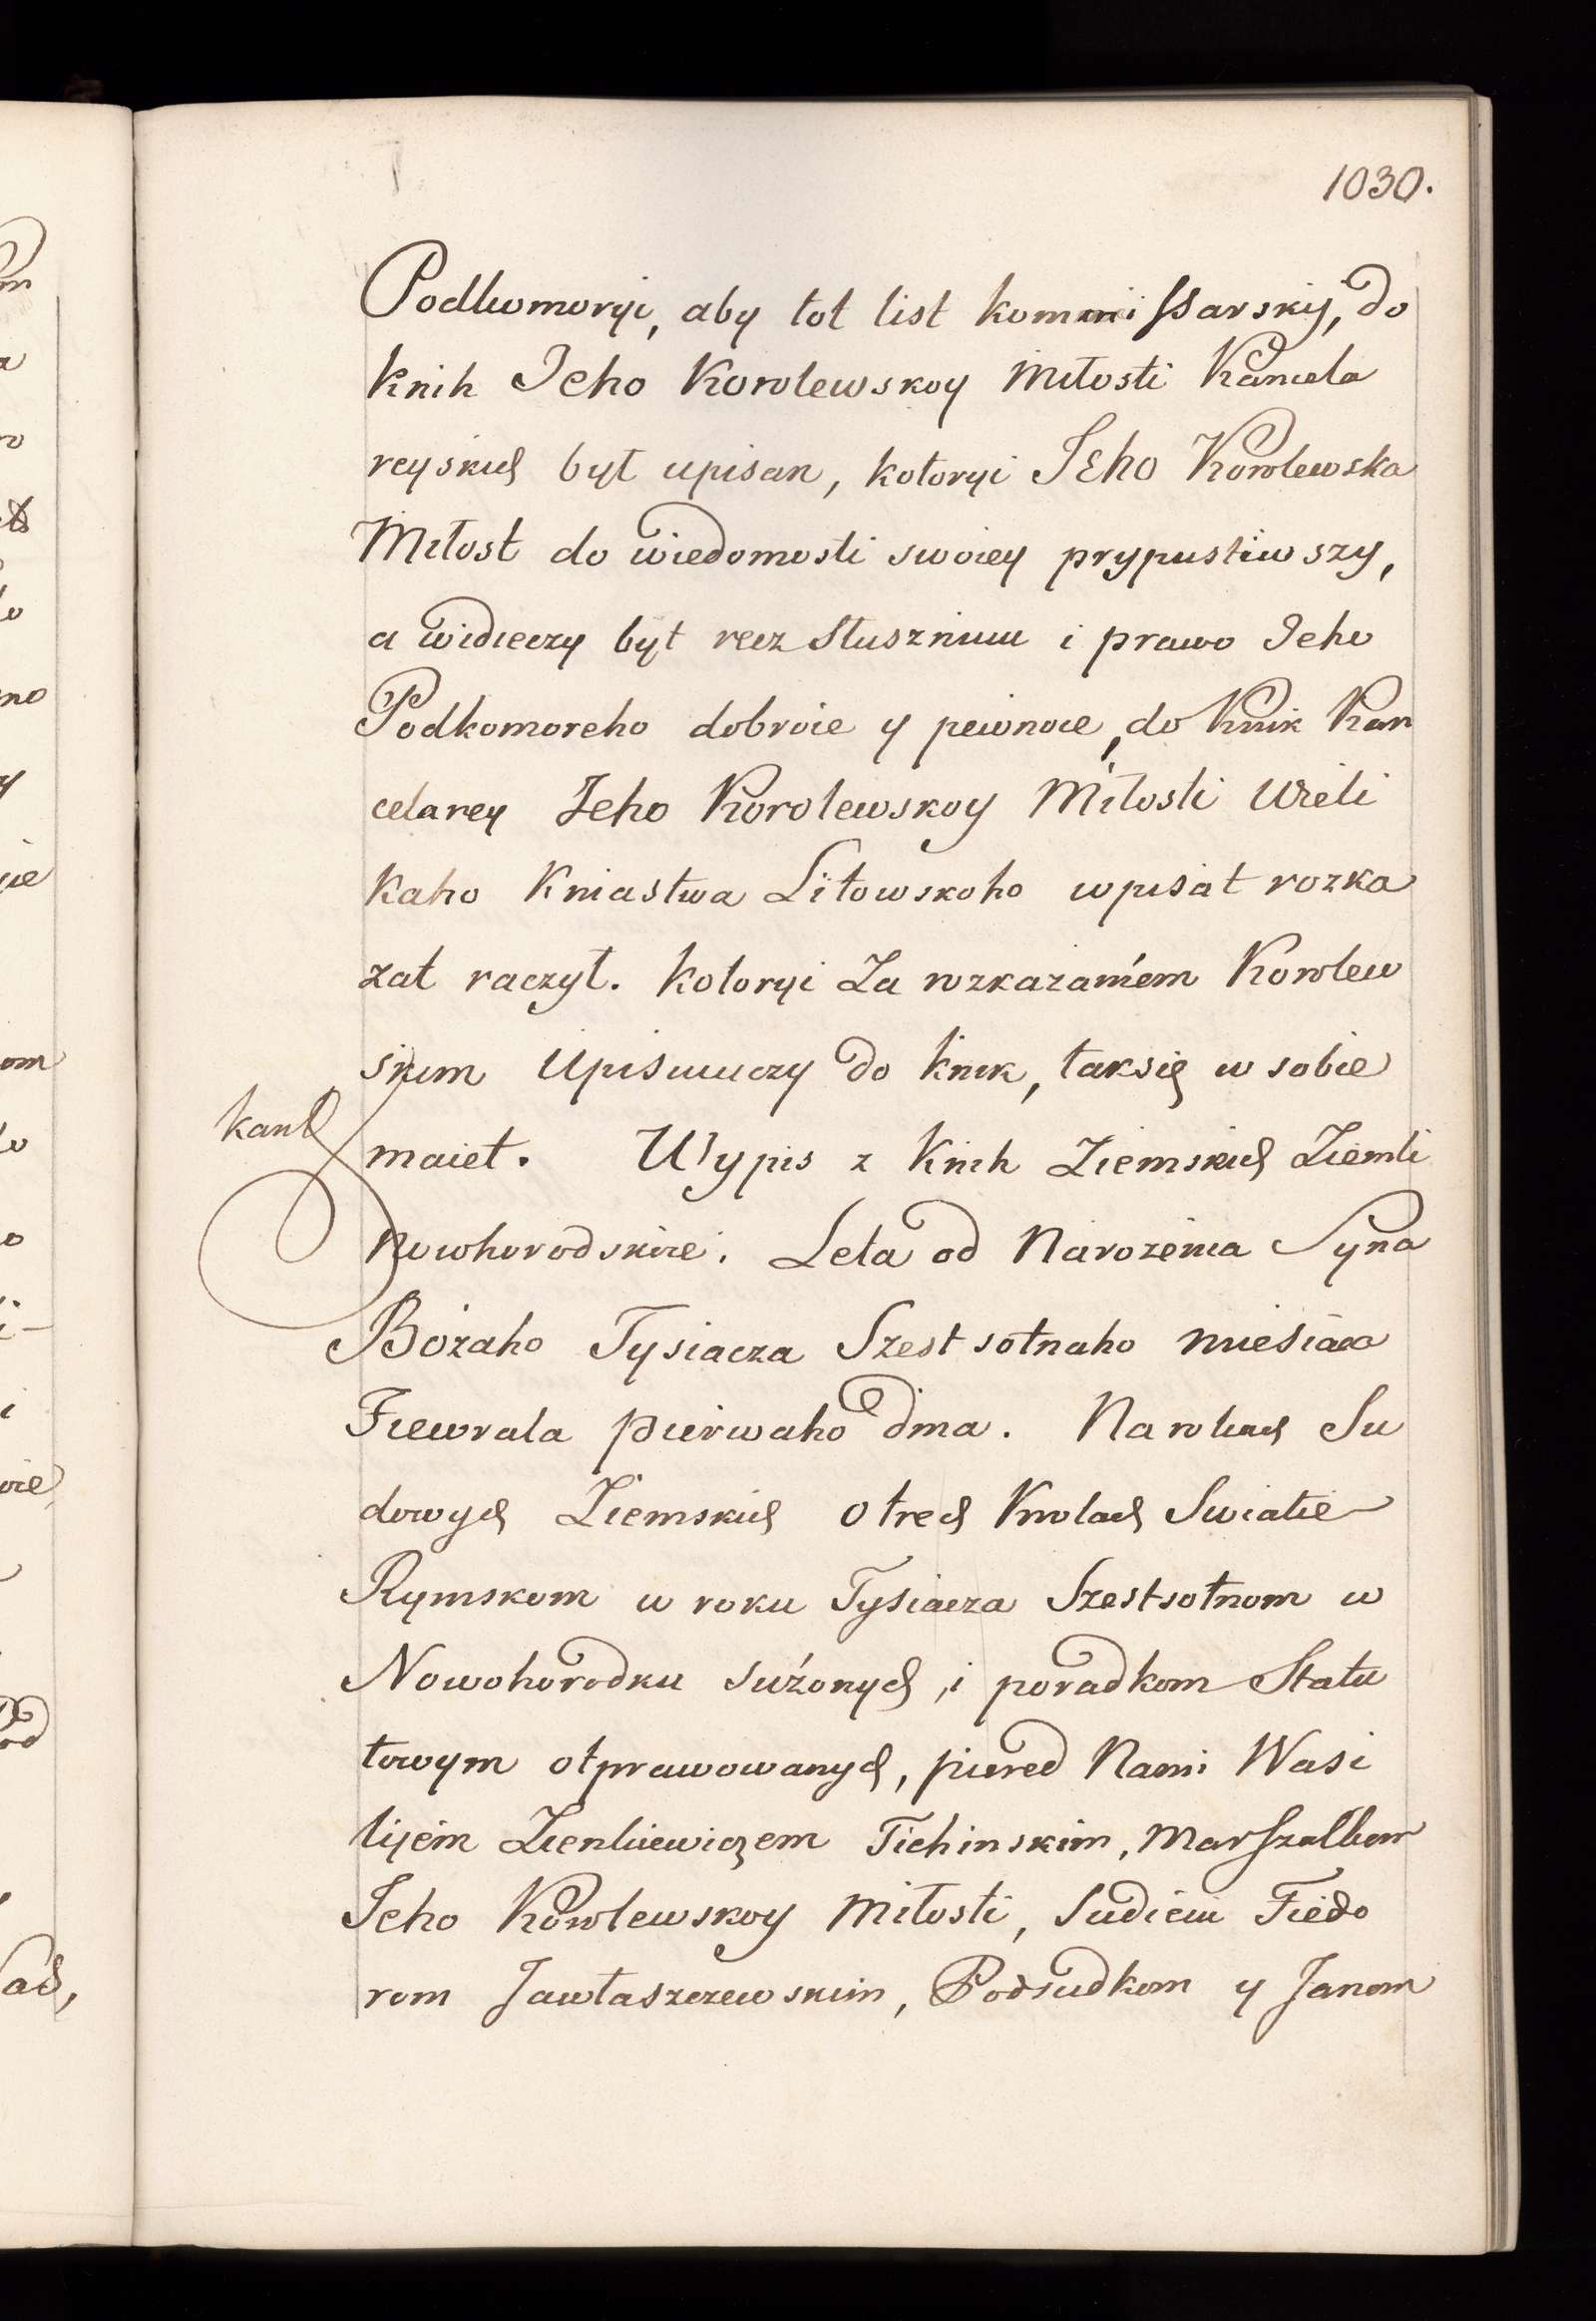 1030.
Podkomoryi, aby tot list kommissarskij, do
knih Jeho Korolewskoy Miłosti Kancela
reyskich był upisan, kotoryi Jeho Korolewska
Miłost do wiedomosti swoiey prypustiwszy,
a widieczy byt recz słusznuiu i prawo Jeho
Podkomoreho dobroie y pewnoie, do Knik Kan
celarey Jeho Korolewskoy Miłosti Wieli
kaho Kniastwa Litowskoho wpisat rozka
zat raczył. Kotoryi Za rozkazaniem Korolew
skim Upisuiuczy do knik, taksię w sobie
maiet. Wypis z Knih Ziemskich Ziemli
Nowhorodskoie. Leta od Narożenia Syna
Bożaho Tysiacza Szestsotnaho miesiaca
Fiewrala pierwaho dnia. Na rokach Su
dowych Ziemskich o trech Krolach Swiatie
Rymskom w roku Tysiacza Szestsotnom w
Nowohorodku sużonych, i poradkom Statu
towym otprawowanych, piered Nami Wasi
lijem Zienkiewiczem Tichinskim, Marszałkom
Jeho Korolewskoy Miłosti, Sudieiu Fiedo
rom Jawłaszczewskim, Podsudkom y Janom